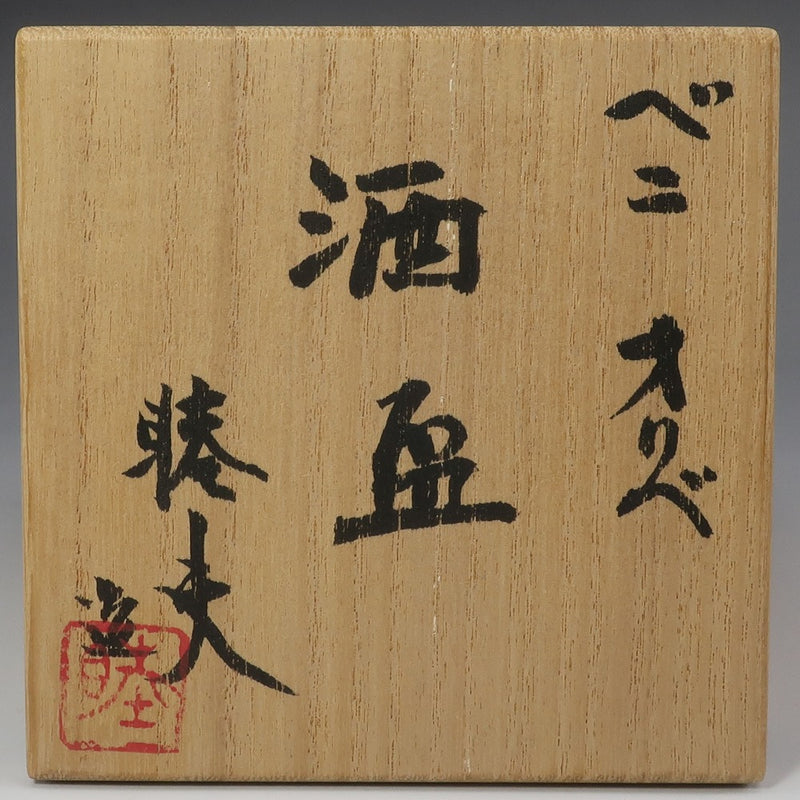 ベニ オリベ
酒盃
睦夫
造
睦